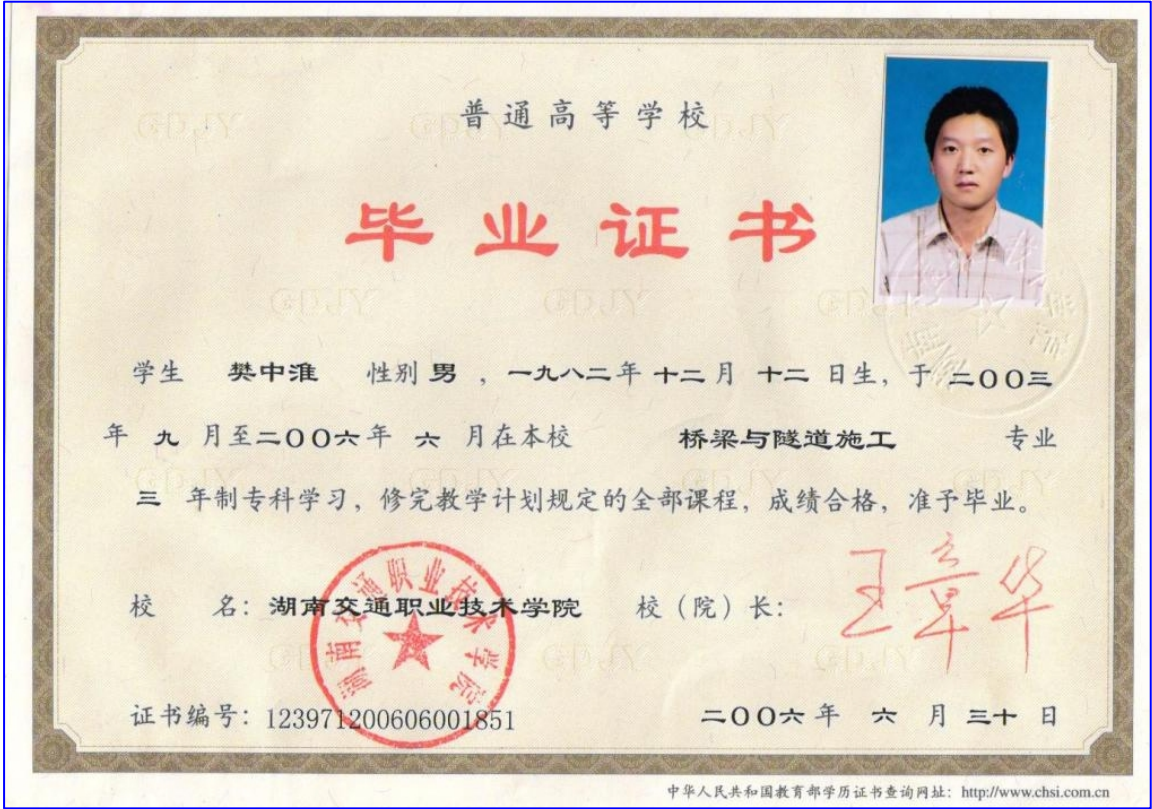 普通高等学校
毕业证书
学生 樊中淮 性别 男 ，一九八二年 十二月 十二 日生，于 二〇〇三
年 九 月至二〇〇六年 六 月在本校 桥梁与隧道施工 专业
三 年制专科学习，修完教学计划规定的全部课程，成绩合格，准予毕业。
校 名：湖南交通职业技术学院 校（院）长：王章华
湖南交通职业技术学院
证书编号：123971200606001851 二〇〇六年 六 月 三十 日
中华人民共和国教育部学历证书查询网址：http://www.chsi.com.cn
GDJY